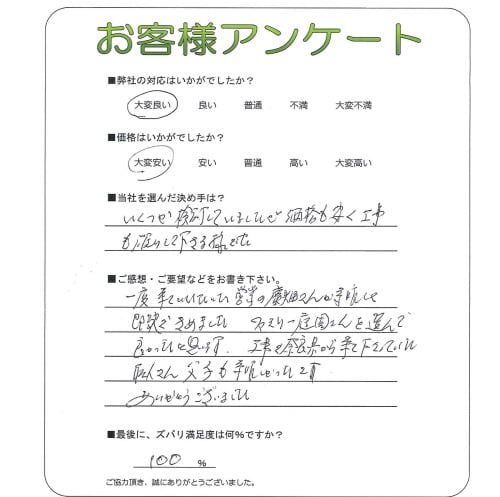 お客様アンケート
■弊社の対応はいかがでしたか?
大変良い 良い 普通 不満 大変不満
■価格はいかがでしたか?
大変安い 安い 普通 高い 大変高い
■当社を選んだ決め手は?
いくつか検討していましたが価格も安く工事
も して下さる様でした
■ご感想・ご要望などをお書き下さい。
一度来ていただいた営業の さんが
即決できめました 一 さんを選んで
良かったと思います。工事も奈良県から来て下さっていた
職人さん 父子も
ありがとうございました
■最後に、ズバリ満足度は何%ですか?
100 %
ご協力頂き、誠にありがとうございました。